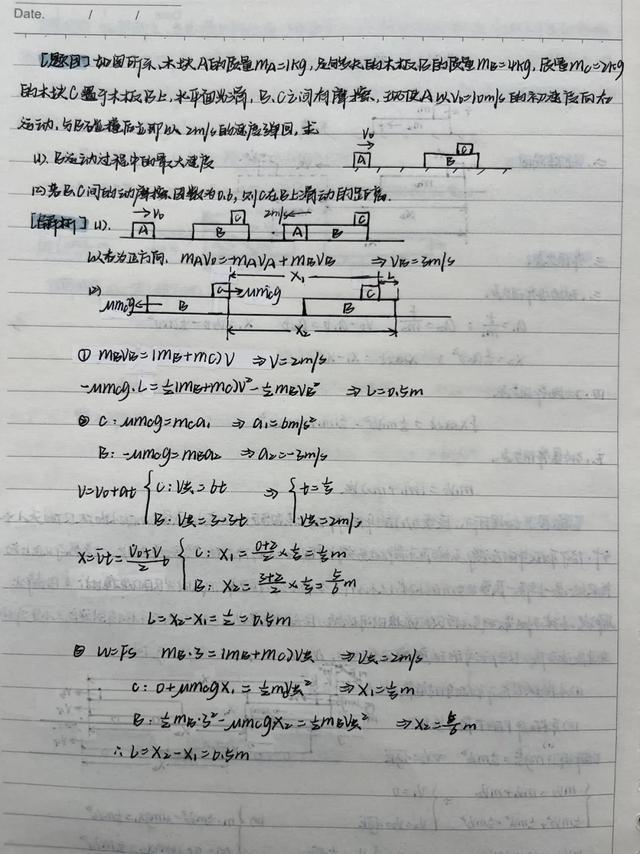 Date. / /
[题目] 如图所示、木块A的质量mA=1kg,足够长的木板B的质量mB=4kg,质量mC=2kg
的木块C置于木板B上,水平面光滑,B、C之间有摩擦、现使A以V₀=10m/s的初速度向右
运动,与B碰撞后立即以2m/s的速度弹回,求
(1). B运动过程中的最大速度
V₀
A B C
(2)若B、C间的动摩擦因数为0.6,则C在B上滑动的距离.
[解析] (1).
V₀ A B C 2m/s A B C
以右为正方向, mAV₀=-mAVA+mBVB ⇒VB=3m/s
(2)
X₁ L
C μmcg C
μmcg B B
X₂
① mBVB=(mB+mC)V ⇒V=2m/s
-μmcg·L=½(mB+mC)V²-½mBVB² ⇒L=0.5m
② C: μmcg=mca₁ ⇒a₁=6m/s²
B: -μmcg=mBa₂ ⇒a₂=-3m/s
V=V₀+at { C: V共=6t ⇒ { t=⅓
B: V共=3-3t V共=2m/s
X=v̄t=(V₀+V)/2 t { C: X₁=(0+2)/2×⅓=⅓m
B: X₂=(3+2)/2×⅓=⅚m
L=X₂-X₁=½=0.5m
③ W=FS mB·3=(mB+mC)V共 ⇒V共=2m/s
C: 0+μmcgX₁=½mV共² ⇒X₁=⅓m
B: ½mB·3²-μmcgX₂=½mBV共² ⇒X₂=⅚m
∴L=X₂-X₁=0.5m